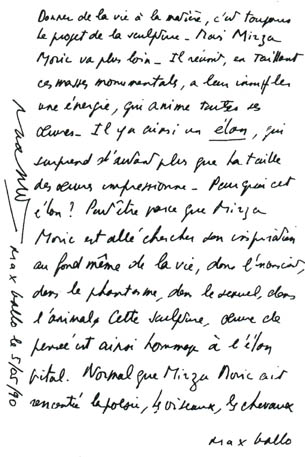 Donner de la vie à la matière, c'est toujours
le projet de la sculpture - Mais Mirza
Moric va plus loin - Il réussit, en taillant
ces masses monumentales, a leur insuffler
une énergie, qui anime toutes ses
œuvres - Il y a ainsi un élan, qui
surprend d'autant plus que la taille
des œuvres impressionne - Pourquoi cet
élan? Peut être parce que Mirza
Moric est allé chercher son inspiration
au fond même de la vie, dans l'inconscient,
dans le phantasme, dans le sexuel, dans
l'animal. Cette sculpture, œuvre de
pensée est ainsi hommage à l'élan
vital. Normal que Mirza Moric ait
rencontré la poésie, les oiseaux, les chevaux
max Gallo
max Gallo le 5/05/90